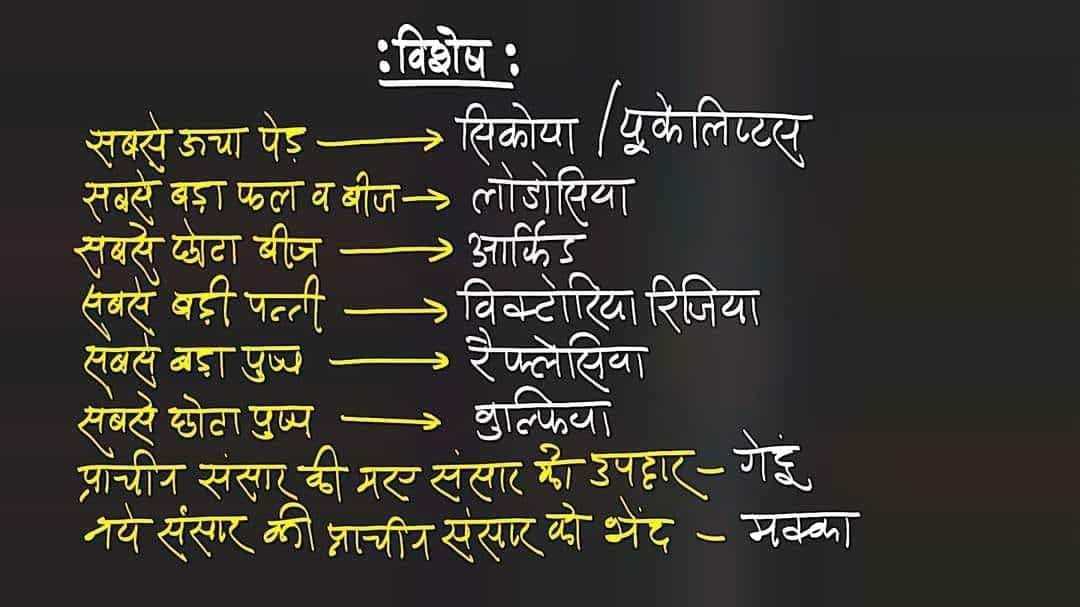 : विशेष :
सबसे ऊचा पेड़ → सिकोया / यूकेलिप्टस
सबसे बड़ा फल व बीज → लोडोसिया
सबसे छोटा बीज → आर्किड
सबसे बड़ी पत्ती → विक्टोरिया रिजिया
सबसे बड़ा पुष्प → रैफ्लेसिया
सबसे छोटा पुष्प → वुल्फिया
प्राचीन संसार की नए संसार को उपहार – गेहूं
नये संसार की प्राचीन संसार को भेंद – मक्का